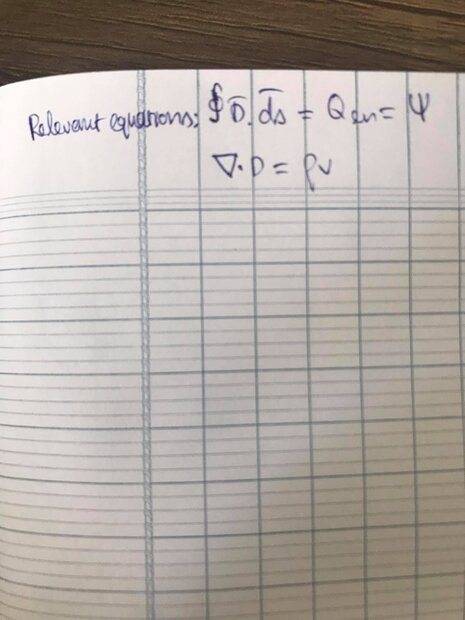 Relevant equations: ∮ D̄. d̄s = Qen = Ψ
∇. D = ρv